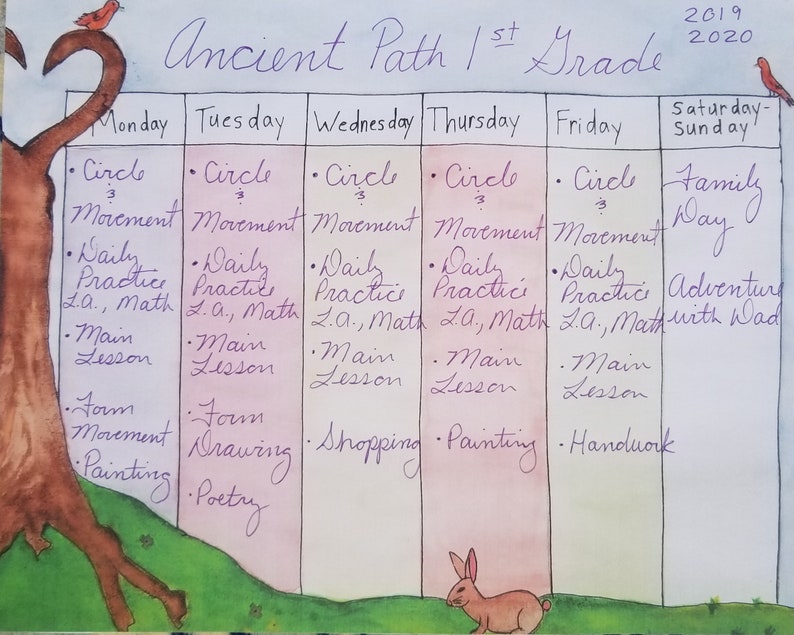 Ancient Path 1st Grade
2019
2020
Monday
• Circle
&
Movement
• Daily
Practice
L.A., Math
• Main
Lesson
• Form
Movement
• Painting
Tuesday
• Circle
&
Movement
• Daily
Practice
L.A., Math
• Main
Lesson
• Form
Drawing
• Poetry
Wednesday
• Circle
&
Movement
• Daily
Practice
L.A., Math
• Main
Lesson
• Shopping
Thursday
• Circle
&
Movement
• Daily
Practice
L.A., Math
• Main
Lesson
• Painting
Friday
• Circle
&
Movement
• Daily
Practice
L.A., Math
• Main
Lesson
• Handwork
Saturday-
Sunday
Family
Day
Adventure
with Dad